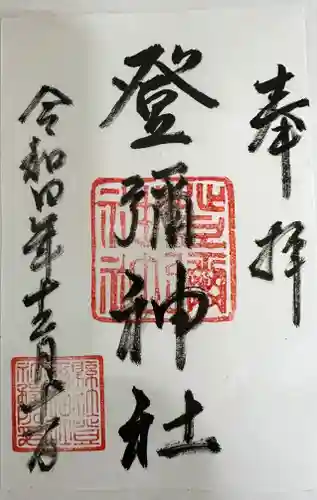 奉拝
登彌神社
令和四年十二月十一日